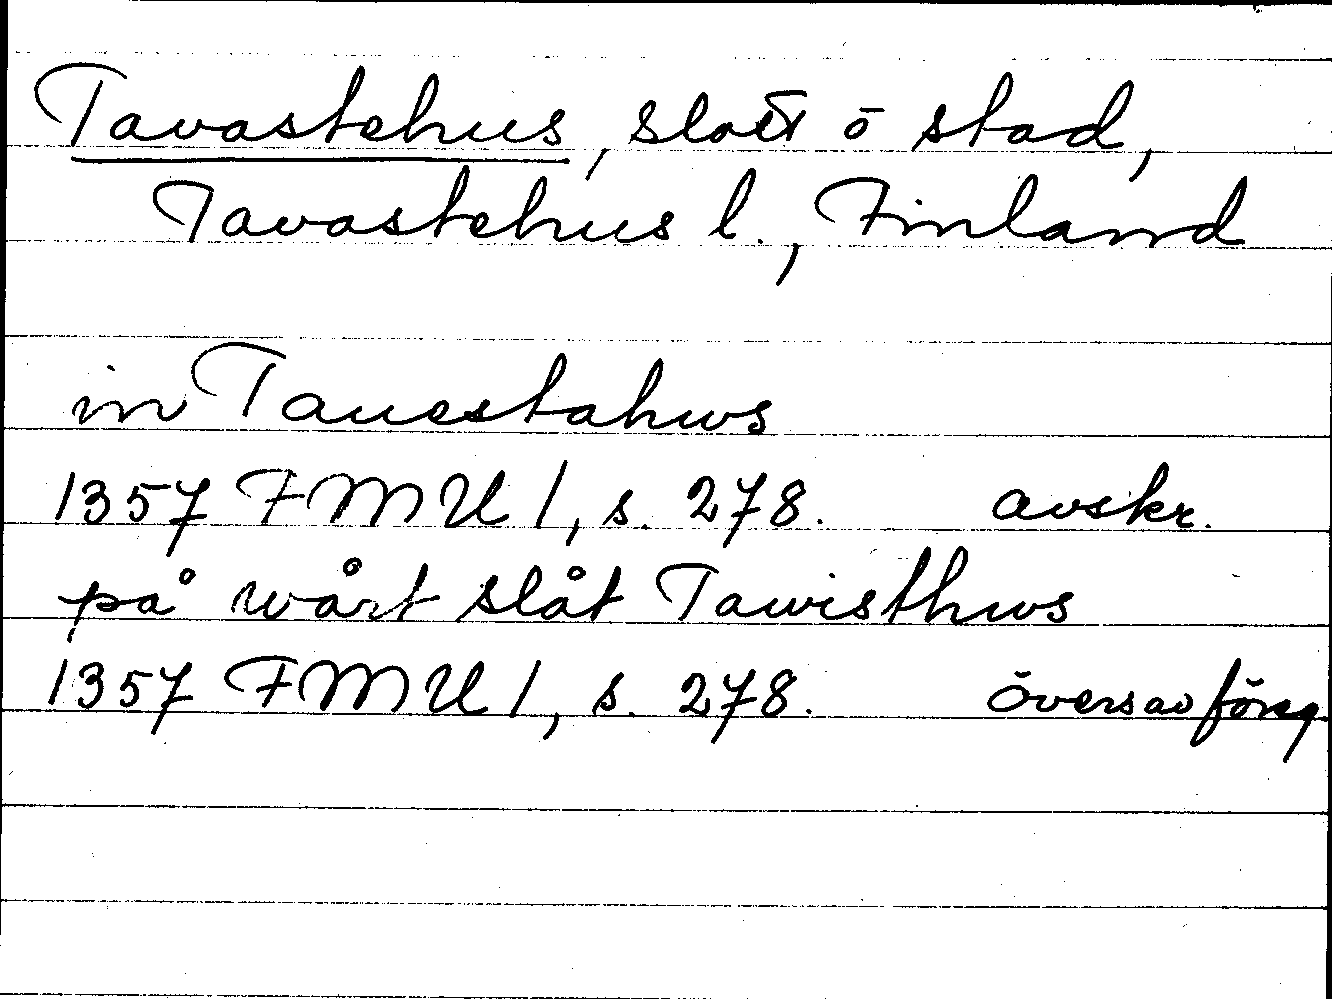 Tavastehus, slott ō stad,
Tavastehus l., Finland
in Tauestahws
1357 FMU 1, s. 278. avskr.
på wårt slåt Tawisthws
1357 FMU 1, s. 278. övers av föreg